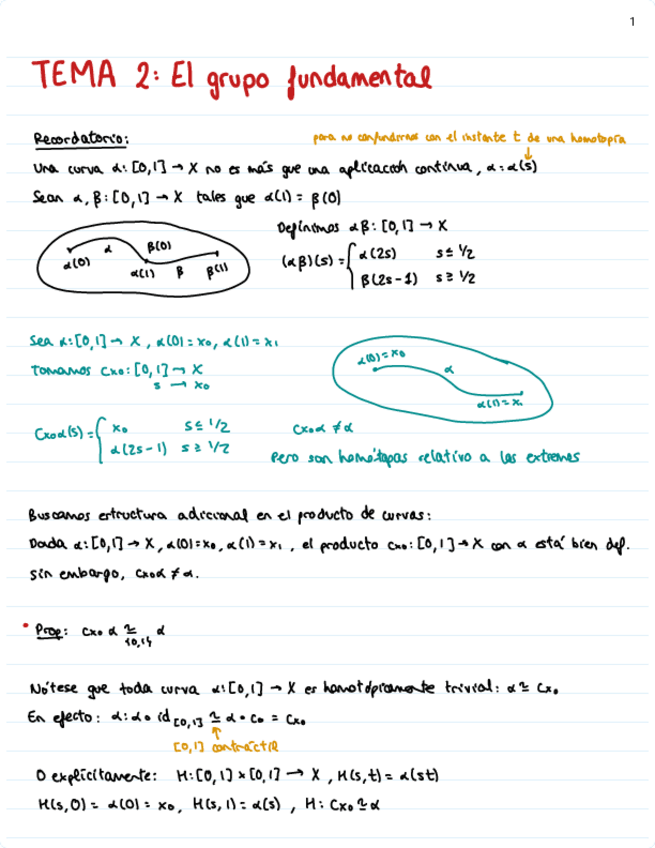 1
TEMA 2: El grupo fundamental
Recordatorio:
para no confundirnos con el instante t de una homotopía
Una curva α: [0,1] → X no es más que una aplicación continua, α = α(s)
Sean α, β: [0,1] → X tales que α(1) = β(0)
Definimos αβ: [0,1] → X
(αβ)(s) = { α(2s) s ≤ 1/2
β(2s-1) s ≥ 1/2
α(0) α α(1) β(0) β β(1)
Sea α: [0,1] → X, α(0) = x₀, α(1) = x₁
Tomamos Cx₀: [0,1] → X
s → x₀
α(0) = x₀ α α(1) = x₁
Cx₀α(s) = { x₀ s ≤ 1/2
α(2s-1) s ≥ 1/2
Cx₀α ≠ α
Pero son homótopas relativo a los extremos
Buscamos estructura adicional en el producto de curvas:
Dada α: [0,1] → X, α(0) = x₀, α(1) = x₁, el producto Cx₀: [0,1] → X con α está bien def.
sin embargo, Cx₀α ≠ α.
• Prop: Cx₀ α ≃{0,1} α
Nótese que toda curva α: [0,1] → X es homotópicamente trivial: α ≃ Cx₀
En efecto: α = α∘id[0,1] ≃ α∘C₀ = Cx₀
[0,1] contráctil
O explícitamente: H: [0,1] × [0,1] → X, H(s,t) = α(st)
H(s,0) = α(0) = x₀, H(s,1) = α(s), H: Cx₀ ≃ α